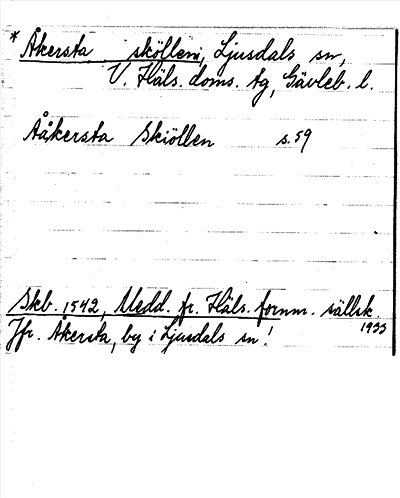 * Åkersta skölleni, Ljusdals sn,
V. Häls. doms. tg, Gävleb. l.
Aåkersta Skiöllen s. 59
Skb. 1542, Medd. fr. Häls. fornm. sällsk.
1933
Jfr. Åkersta, by i Ljusdals sn!